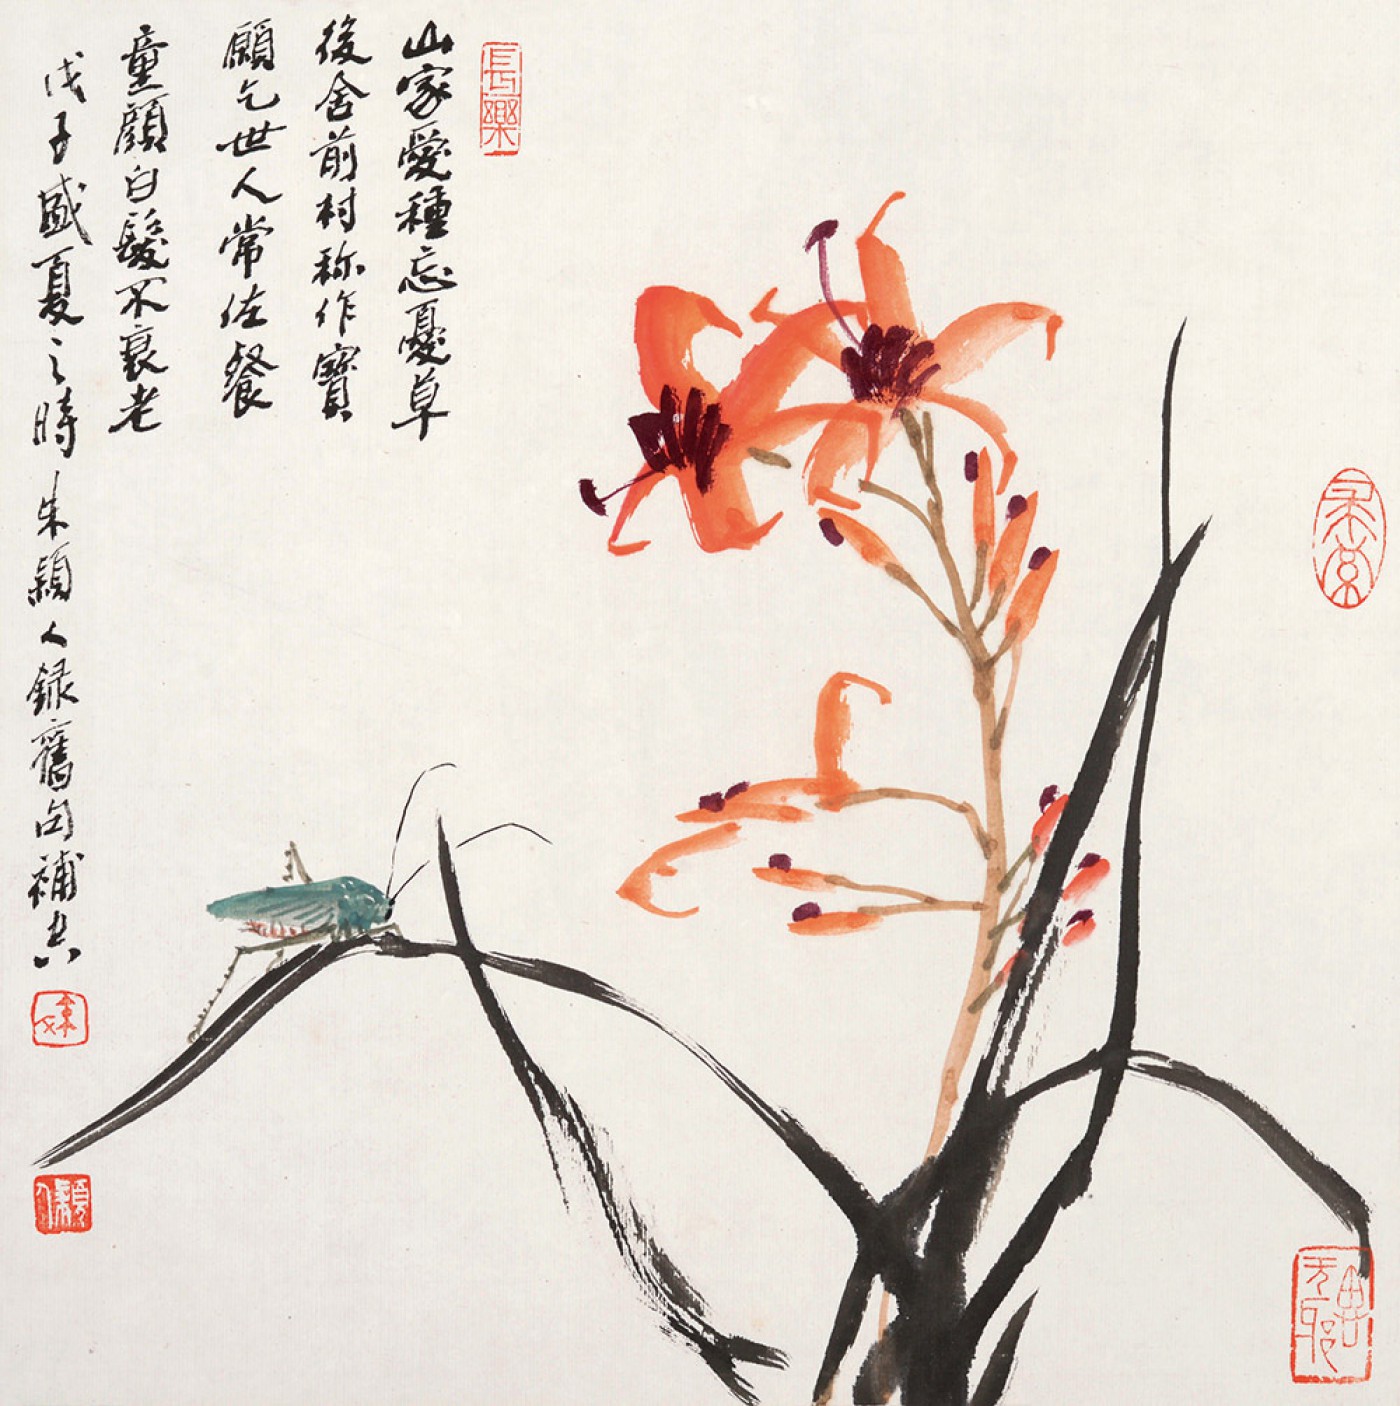 山家愛種忘憂草
後舍前村称作寶
願乞世人常佐餐
童顏白髮不衰老
戊子盛夏之時朱穎人録舊句補空
長樂